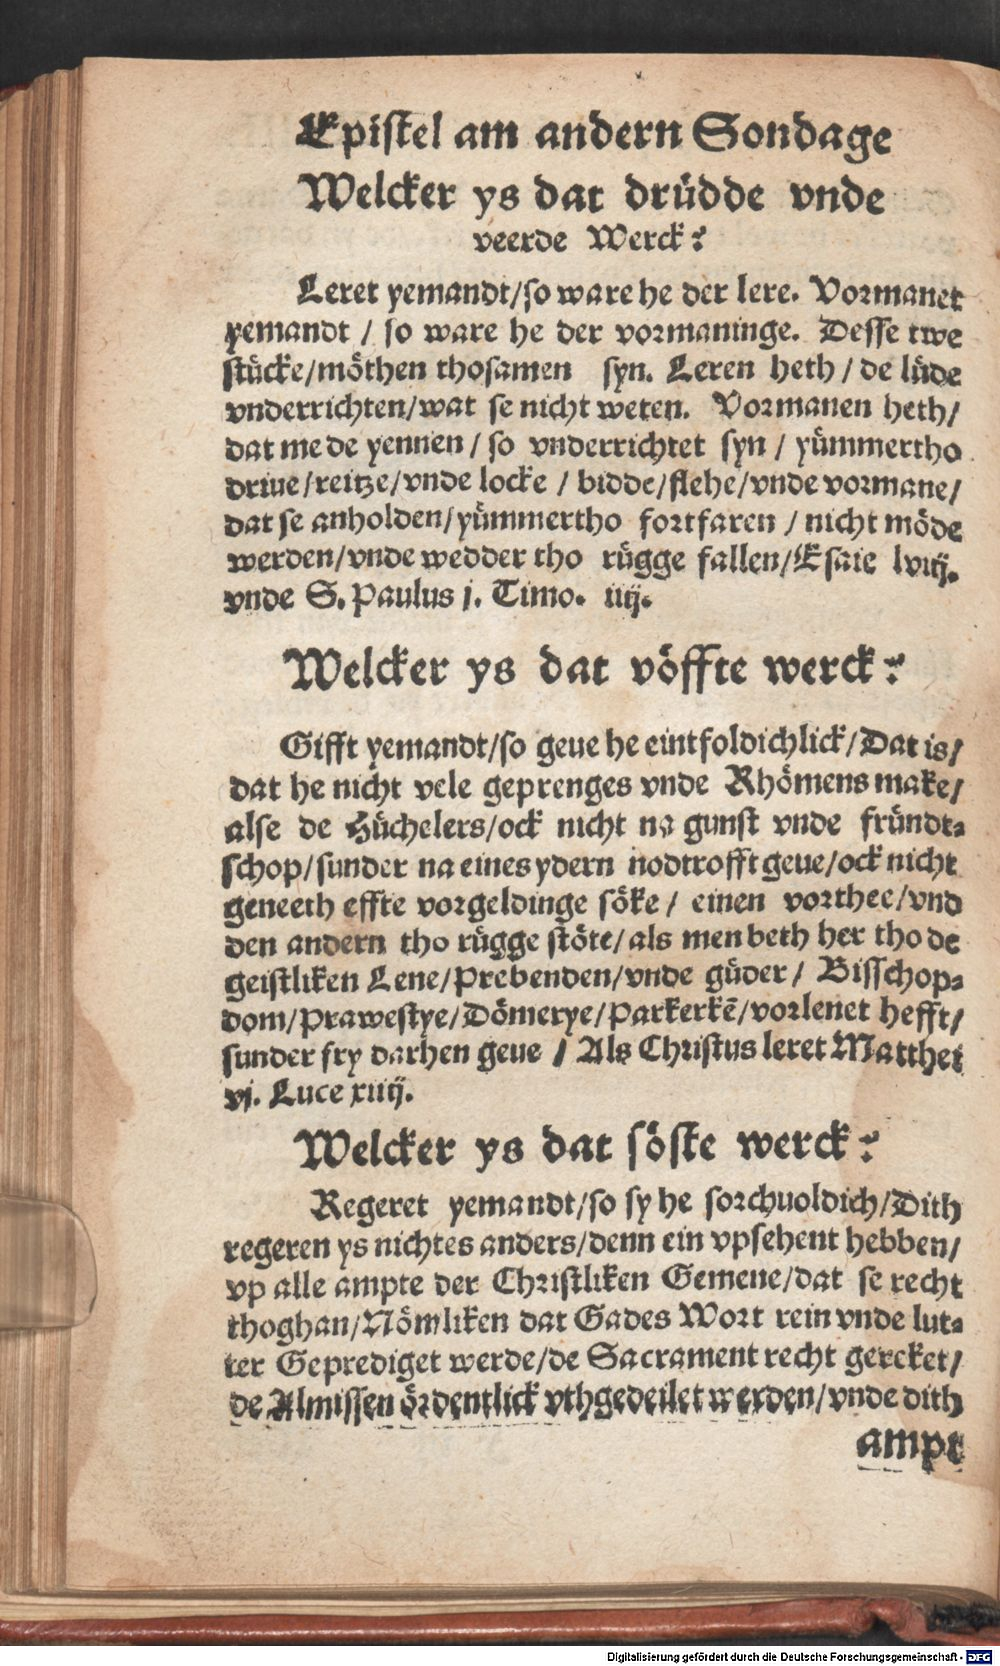 Epistel am andern Sondage
Welcker ys dat drüdde vnde
veerde Werck?
Leret yemandt/so ware he der lere. Vormanet
yemandt / so ware he der vormaninge. Desse twe
stücke/möthen thosamen syn. Leren heth / de lüde
vnderrichten/wat se nicht weten. Vormanen heth/
dat me de yennen / so vnderrichtet syn / yümmertho
driue/reitze/vnde locke / bidde/flehe/vnde vormane/
dat se anholden/yümmertho fortfaren / nicht möde
werden/vnde wedder tho rügge fallen/Esaie lviij.
vnde S. Paulus j. Timo. iiij.
Welcker ys dat vöffte werck?
Gifft yemandt/so geue he eintfoldichlick/Dat is/
dat he nicht vele geprenges vnde Rhömens make/
alse de Hüchelers/ock nicht na gunst vnde fründt-
schop/sunder na eines ydern nodtrofft geue/ock nicht
geneeth effte vorgeldinge söke / einen vorthee/vnd
den andern tho rügge stöte/als men beth her tho de
geistliken Lene/Prebenden/vnde güder/ Bisschop-
dom/Prawestye/Dömerye/Parkerkē/vorlenet hefft/
sunder fry darhen geue / Als Christus leret Matthei
vj. Luce xiiij.
Welcker ys dat söste werck?
Regeret yemandt/so sy he sorchuoldich/Dith
regeren ys nichtes anders/denn ein vpsehent hebben/
vp alle ampte der Christliken Gemene/dat se recht
thoghan/Nömliken dat Gades Wort rein vnde lut-
ter Geprediget werde/de Sacrament recht gereket/
de Almissen ördentlick vthgedeilet werden/vnde dith
ampt
Digitalisierung gefördert durch die Deutsche Forschungsgemeinschaft - DFG